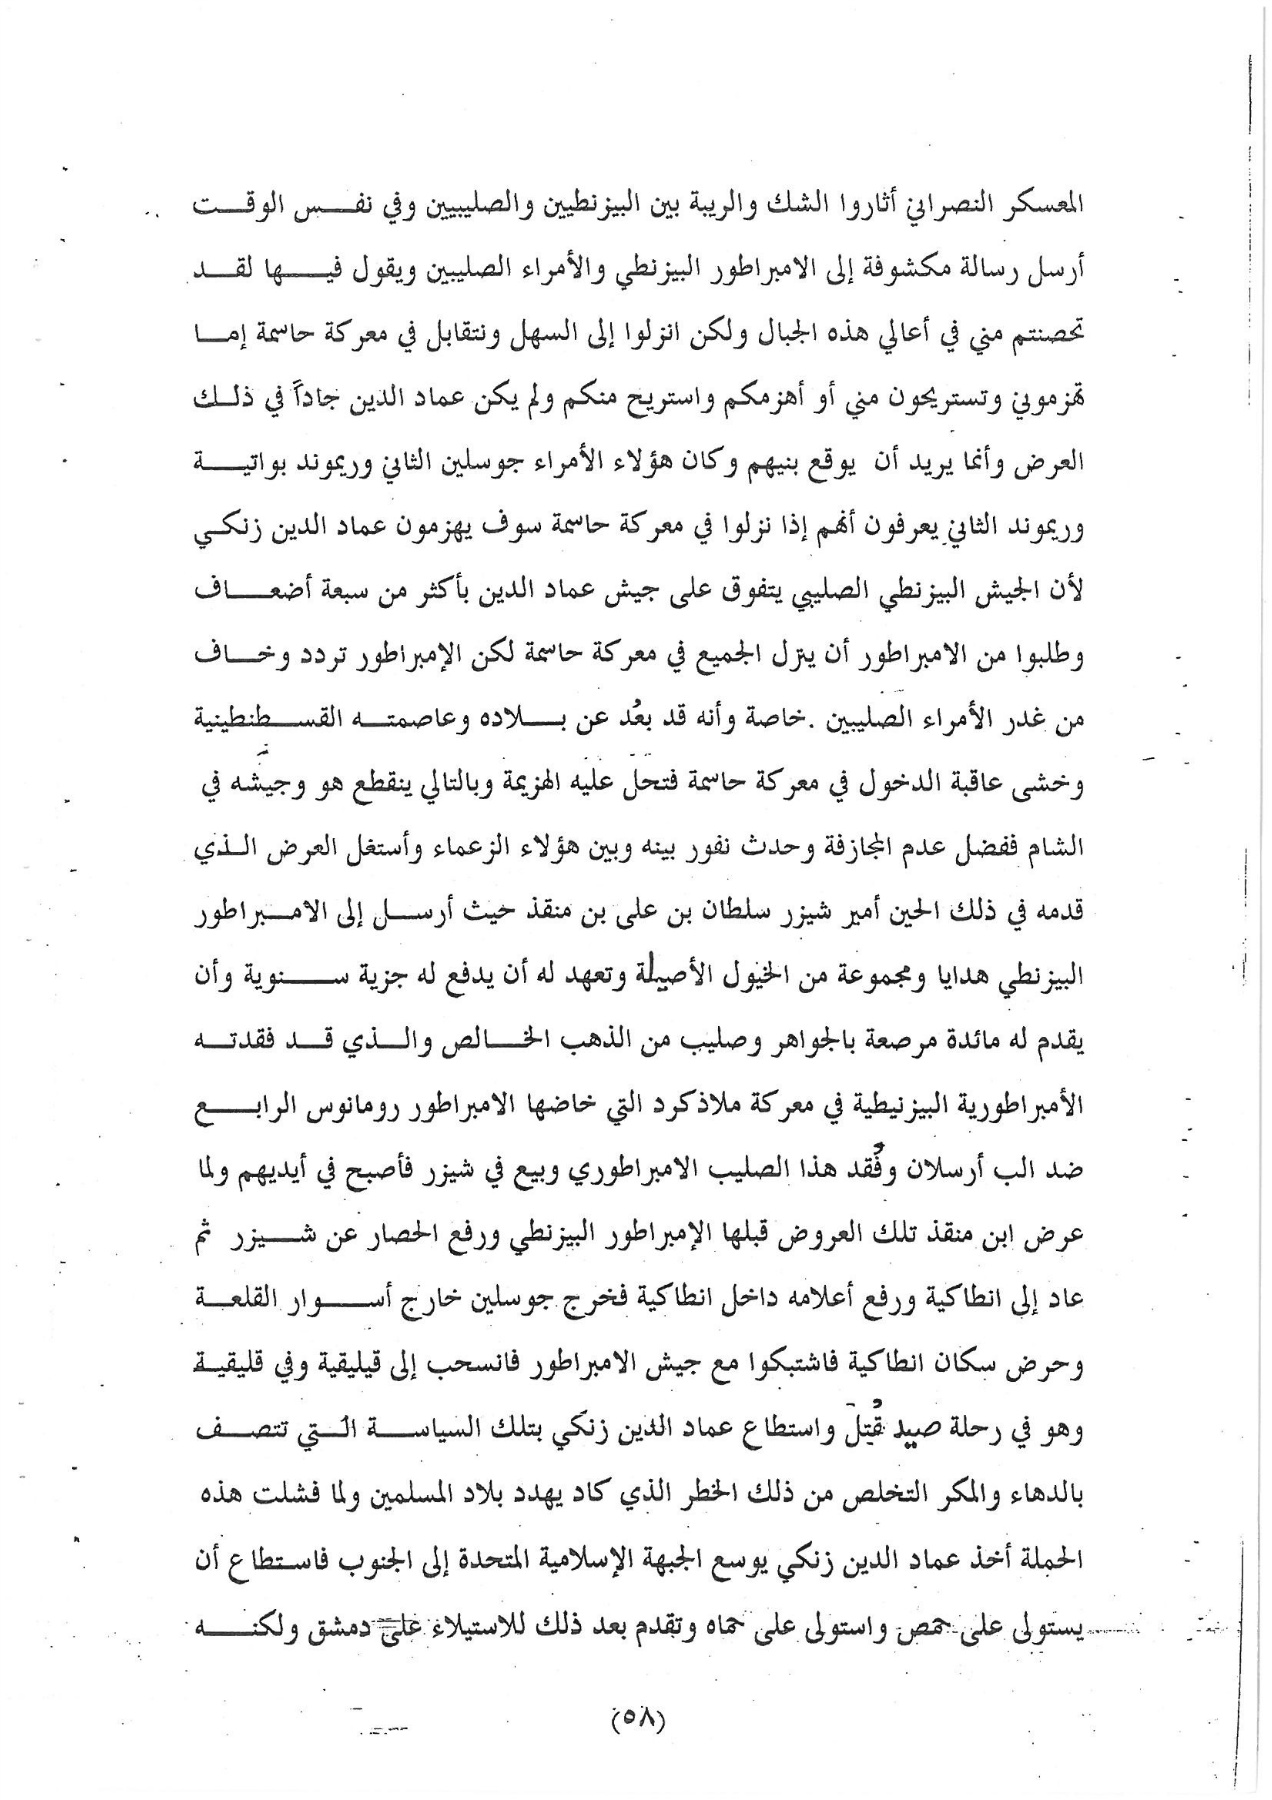 المعسكر النصراني أثاروا الشك والريبة بين البيزنطيين والصليبيين وفي نفس الوقت
أرسل رسالة مكشوفة إلى الامبراطور البيزنطي والأمراء الصليبين ويقول فيها لقد
تحصنتم مني في أعالي هذه الجبال ولكن انزلوا إلى السهل ونتقابل في معركة حاسمة إما
تهزموني وتستريحون مني أو أهزمكم واستريح منكم ولم يكن عماد الدين جاداً في ذلك
العرض وأنما يريد أن يوقع بنيهم وكان هؤلاء الأمراء جوسلين الثاني وريموند بواتية
وريموند الثاني يعرفون أنهم إذا نزلوا في معركة حاسمة سوف يهزمون عماد الدين زنكي
لأن الجيش البيزنطي الصليبي يتفوق على جيش عماد الدين بأكثر من سبعة أضعاف
وطلبوا من الامبراطور أن ينزل الجميع في معركة حاسمة لكن الإمبراطور تردد وخاف
من غدر الأمراء الصليبين .خاصة وأنه قد بعُد عن بلاده وعاصمته القسطنطينية
وخشى عاقبة الدخول في معركة حاسمة فتحل عليه الهزيمة وبالتالي ينقطع هو وجيشه في
الشام ففضل عدم المجازفة وحدث نفور بينه وبين هؤلاء الزعماء وأستغل العرض الذي
قدمه في ذلك الحين أمير شيزر سلطان بن على بن منقذ حيث أرسل إلى الامبراطور
البيزنطي هدايا ومجموعة من الخيول الأصيلة وتعهد له أن يدفع له جزية سنوية وأن
يقدم له مائدة مرصعة بالجواهر وصليب من الذهب الخالص والذي قد فقدته
الأمبراطورية البيزنيطية في معركة ملاذكرد التي خاضها الامبراطور رومانوس الرابع
ضد الب أرسلان وفُقد هذا الصليب الامبراطوري وبيع في شيزر فأصبح في أيديهم ولما
عرض ابن منقذ تلك العروض قبلها الإمبراطور البيزنطي ورفع الحصار عن شيزر ثم
عاد إلى انطاكية ورفع أعلامه داخل انطاكية فخرج جوسلين خارج أسوار القلعة
وحرض سكان انطاكية فاشتبكوا مع جيش الامبراطور فانسحب إلى قيليقية وفي قليقية
وهو في رحلة صيد قُتِلَ واستطاع عماد الدين زنكي بتلك السياسة التي تتصف
بالدهاء والمكر التخلص من ذلك الخطر الذي كاد يهدد بلاد المسلمين ولما فشلت هذه
الحملة أخذ عماد الدين زنكي يوسع الجبهة الإسلامية المتحدة إلى الجنوب فاستطاع أن
يستولى على حمص واستولى على حماه وتقدم بعد ذلك للاستيلاء على دمشق ولكنه
(٥٨)